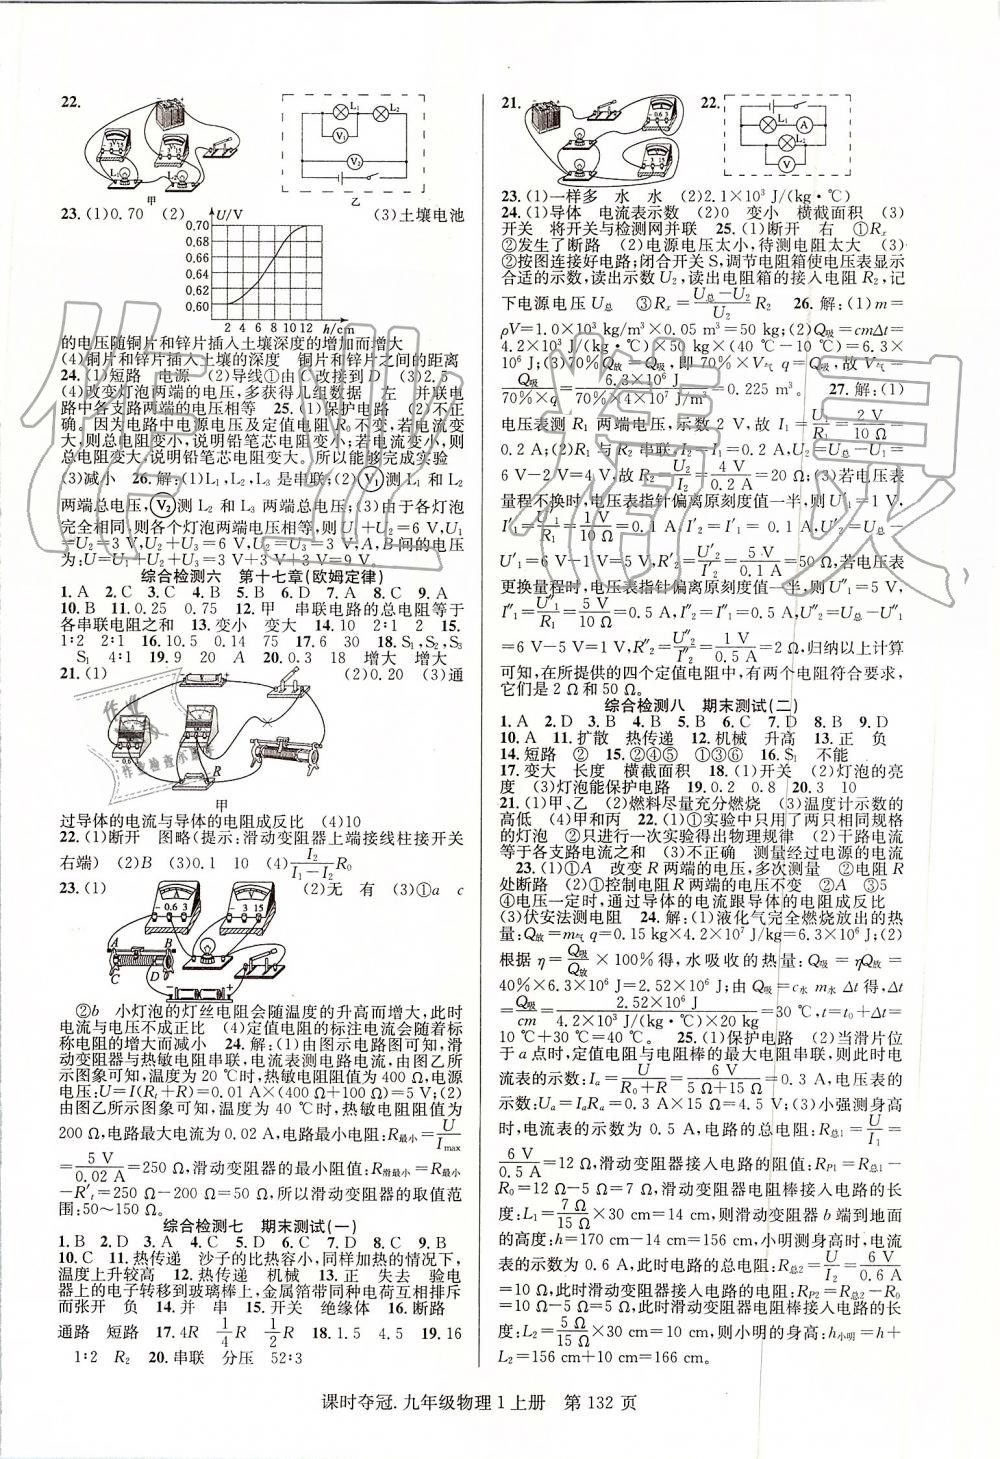 22.
甲
乙
23.(1)0.70 (2) (3)土壤电池
U/V
0.70
0.68
0.66
0.64
0.62
0.60
2 4 6 8 10 12 h/cm
的电压随铜片和锌片插入土壤深度的增加而增大
(4)铜片和锌片插入土壤的深度 铜片和锌片之间的距离
24.(1)短路 电源 (2)导线①由C改接到D (3)2.5
(4)改变灯泡两端的电压,多获得几组数据 左 并联电
路中各支路两端的电压相等 25.(1)保护电路 (2)不正
确。因为电路中电源电压及定值电阻R₀不变,若电流变
大,则总电阻变小,说明铅笔芯电阻变小;若电流变小,则
总电阻变大,说明铅笔芯电阻变大。所以能够完成实验
(3)减小 26.解:(1)L₁,L₂,L₃是串联;(2)V₁测L₁和L₂
两端总电压,V₂测L₂和L₃两端总电压;(3)由于各灯泡
完全相同,则各个灯泡两端电压相等,则U₁+U₂=6 V,U₁
=U₂=3 V,U₂+U₃=6 V,U₂=U₃=3 V,A、B间的电压
为:U=U₁+U₂+U₃=3 V+3 V+3 V=9 V。
综合检测六 第十七章(欧姆定律)
1.A 2.C 3.C 4.B 5.B 6.D 7.A 8.C 9.A
10.B 11.0.25 0.75 12.甲 串联电路的总电阻等于
各串联电阻之和 13.变小 变大 14.10 2:1 2 15.
1:2 2:1 16.10.5 0.14 75 17.6 30 18.S₁,S₂,S₃
S₁ 4:1 19.9 20 A 20.0.3 18 增大 增大
21.(1) (2)0.20 (3)通
甲
过导体的电流与导体的电阻成反比 (4)10
22.(1)断开 图略(提示:滑动变阻器上端接线柱接开关
右端) (2)B (3)0.1 10 (4)I₂/(I₁-I₂)R₀
23.(1) (2)无 有 (3)①a c
②b 小灯泡的灯丝电阻会随温度的升高而增大,此时
电流与电压不成正比 (4)定值电阻的标注电流会随着标
称电阻的增大而减小 24.解:(1)由图示电路图可知,滑
动变阻器与热敏电阻串联,电流表测电路电流,由图乙所
示图象可知,温度为20 ℃时,热敏电阻阻值为400 Ω,电源
电压:U=I(Rₜ+R)=0.01 A×(400 Ω+100 Ω)=5 V;(2)
由图乙所示图象可知,温度为40 ℃时,热敏电阻阻值为
200 Ω,电路最大电流为0.02 A,电路最小电阻:R最小=U/Imax
=5 V/0.02 A=250 Ω,滑动变阻器的最小阻值:R滑最小=R最小
-R′ₜ=250 Ω-200 Ω=50 Ω,所以滑动变阻器的取值范
围:50~150 Ω。
综合检测七 期末测试(一)
1.B 2.D 3.A 4.C 5.D 6.C 7.D 8.C 9.B
10.C 11.热传递 沙子的比热容小,同样加热的情况下,
温度上升较高 12.热传递 机械 13.正 失去 验电
器上的电子转移到玻璃棒上,金属箔带同种电荷互相排斥
而张开 负 14.并 串 15.开关 绝缘体 16.断路
通路 短路 17.4R 1/4R 1/2R 18.1.5 4.5 19.16
1:2 R₂ 20.串联 分压 52:3
21. 22.
23.(1)一样多 水 水 (2)2.1×10³ J/(kg·℃)
24.(1)导体 电流表示数 (2)0 变小 横截面积 (3)
开关 将开关与检测网并联 25.(1)断开 右 ①Rₓ
②发生了断路 (2)电源电压太小,待测电阻太大 (3)
②按图连接好电路;闭合开关S,调节电阻箱使电压表显示
合适的示数,读出示数U₂,读出电阻箱的接入电阻R₂,记
下电源电压U总 ③Rₓ=(U总-U₂)/U₂ R₂ 26.解:(1)m=
ρV=1.0×10³ kg/m³×0.05 m³=50 kg;(2)Q吸=cmΔt=
4.2×10³ J/(kg·℃)×50 kg×(40 ℃-10 ℃)=6.3×
10⁶ J;(3)70%Q放=Q吸,即70%×V气q=Q吸,故V气=
Q吸/(70%×q)=6.3×10⁶ J/(70%×4×10⁷ J/m³)=0.225 m³。 27.解:(1)
电压表测R₁两端电压,示数2 V,故I₁=U₁/R₁=2 V/10 Ω=
0.2 A;(2)R₁与R₂串联,I₂=I₁=0.2 A,U₂=U总-U₁=
6 V-2 V=4 V,故R₂=U₂/I₂=4 V/0.2 A=20 Ω;(3)若电压表
量程不换时,电压表指针偏离原刻度值一半,则U′₁=1 V,
I′₁=U′₁/R₁=1 V/10 Ω=0.1 A,I′₂=I′₁=0.1 A,U′₂=U总-
U′₁=6 V-1 V=5 V,R′₂=U′₂/I′₂=5 V/0.1 A=50 Ω;若电压表
更换量程时,电压表指针偏离原刻度值一半,则U″₁=5 V,
I″₁=U″₁/R₁=5 V/10 Ω=0.5 A,I″₂=I″₁=0.5 A,U″₂=U总-U″₁
=6 V-5 V=1 V,R″₂=U″₂/I″₂=1 V/0.5 A=2 Ω,归纳以上计算
可知,在所提供的四个定值电阻中,有两个电阻不能使用,
它们是2 Ω和50 Ω。
综合检测八 期末测试(二)
1.A 2.D 3.B 4.B 5.B 6.C 7.D 8.B 9.D
10.A 11.扩散 热传递 12.机械 升高 13.正 负
14.短路 ② 15.②④⑤ ①③⑥ 16.S₁ 不能
17.变大 长度 横截面积 18.(1)开关 (2)灯泡的亮
度 (3)灯泡能保护电路 19.0.2 0.8 20.3 10
21.(1)甲、乙 (2)燃料尽量充分燃烧 (3)温度计示数的
高低 (4)甲和丙 22.(1)①实验中只用了两只相同规格
的灯泡 ②只进行一次实验得出物理规律 (2)干路电流
等于各支路电流之和 (3)不正确 测量经过电源的电流
23.(1)①A 改变R两端的电压,多次测量 ②电阻R
处断路 (2)①控制电阻R两端的电压不变 ②A ③5
④电压一定时,通过导体的电流跟导体的电阻成反比
(3)伏安法测电阻 24.解:(1)液化气完全燃烧放出的热
量:Q放=m气q=0.15 kg×4.2×10⁷ J/kg=6.3×10⁶ J;(2)
根据η=Q吸/Q放×100%得,水吸收的热量:Q吸=ηQ放=
40%×6.3×10⁶ J=2.52×10⁶ J;(3)由Q吸=c水m水Δt得,Δt
=Q吸/cm=2.52×10⁶ J/(4.2×10³ J/(kg·℃)×20 kg)=30 ℃,t=t₀+Δt=
10 ℃+30 ℃=40 ℃。 25.(1)保护电路 (2)当滑片位
于a点时,定值电阻与电阻棒的最大电阻串联,则此时电
流表的示数:Iₐ=U/(R₀+R)=6 V/(5 Ω+15 Ω)=0.3 A,电压表的
示数:Uₐ=IₐRₐ=0.3 A×15 Ω=4.5 V;(3)小强测身高
时,电流表的示数为0.5 A,电路的总电阻:R总1=U/I₁=
6 V/0.5 A=12 Ω,滑动变阻器接入电路的阻值:RP1=R总1-
R₀=12 Ω-5 Ω=7 Ω,滑动变阻器电阻棒接入电路的长
度:L₁=7 Ω/15 Ω×30 cm=14 cm,则滑动变阻器b端到地面
的高度:h=170 cm-14 cm=156 cm,小明测身高时,电流
表的示数为0.6 A,此时电路的总电阻:R总2=U/I₂=6 V/0.6 A
=10 Ω,滑动变阻器接入电路的电阻:RP2=R总2-R₀
=10 Ω-5 Ω=5 Ω,滑动变阻器电阻棒接入电路的长
度:L₂=5 Ω/15 Ω×30 cm=10 cm,则小明的身高:h小明=h+
L₂=156 cm+10 cm=166 cm。
课时夺冠.九年级物理1上册 第132页